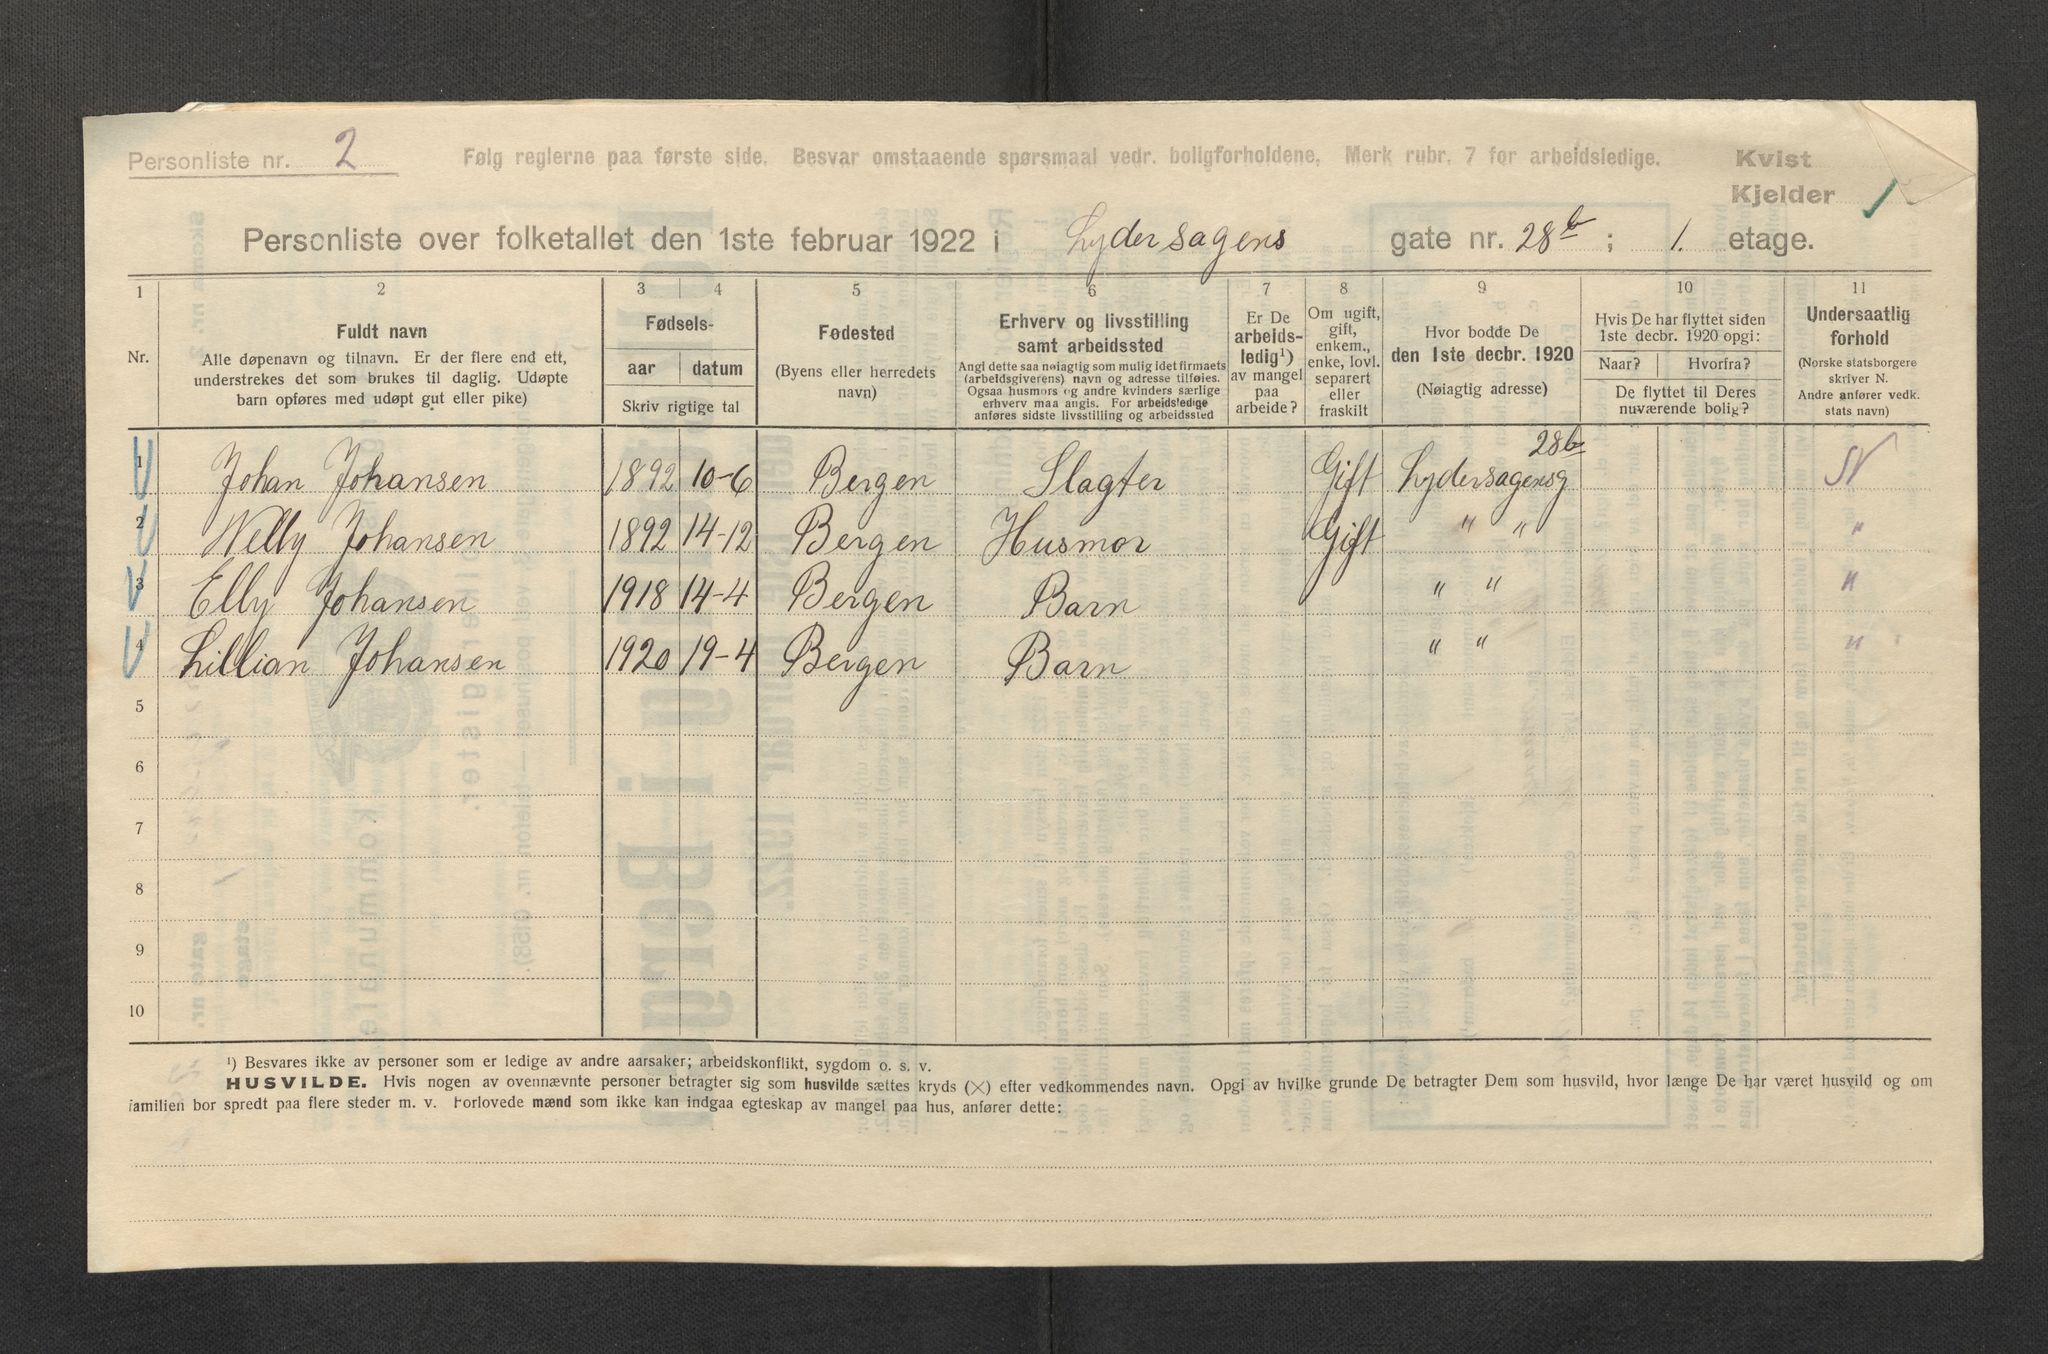 Personliste nr. 2 Følg reglerne paa første side. Besvar omstaaende spørsmaal vedr. boligforholdene. Merk rubr. 7 for arbeidsledige. Kvist
Kjelder
Personliste over folketallet den 1ste februar 1922 i Lydersagens gate nr. 28b; 1. etage.
1 2 3 4 5 6 7 8 9 10 11
Nr.
Fuldt navn
Alle døpenavn og tilnavn. Er der flere end ett,
understrekes det som brukes til daglig. Udøpte
barn opføres med udøpt gut eller pike)
Fødsels-
aar datum
Skriv rigtige tal
Fødested
(Byens eller herredets
navn)
Erhverv og livsstilling
samt arbeidssted
Angi dette saa nøiagtig som mulig idet firmaets
(arbeidsgiverens) navn og adresse tilføies.
Ogsaa husmors og andre kvinders særlige
erhverv maa angis. For arbeidsledige
anføres sidste livsstilling og arbeidssted
Er De
arbeids-
ledig¹)
av mangel
paa
arbeide?
Om ugift,
gift,
enkem.,
enke, lovl.
separert
eller
fraskilt
Hvor bodde De
den 1ste decbr. 1920
(Nøiagtig adresse)
Hvis De har flyttet siden
1ste decbr. 1920 opgi:
Naar? Hvorfra?
De flyttet til Deres
nuværende bolig?
Undersaatlig
forhold
(Norske statsborgere
skriver N.
Andre anfører vedk.
stats navn)
1 Johan Johansen 1892 10-6 Bergen Slagter Gift Lydersagensg 28b N
2 Welly Johansen 1892 14-12 Bergen Husmor Gift " " "
3 Elly Johansen 1918 14-4 Bergen Barn " " "
4 Lillian Johansen 1920 19-4 Bergen Barn " " "
5
6
7
8
9
10
¹) Besvares ikke av personer som er ledige av andre aarsaker; arbeidskonflikt, sygdom o. s. v.
HUSVILDE. Hvis nogen av ovennævnte personer betragter sig som husvilde sættes kryds (×) efter vedkommendes navn. Opgi av hvilke grunde De betragter Dem som husvild, hvor længe De har været husvild og om
familien bor spredt paa flere steder m. v. Forlovede mænd som ikke kan indgaa egteskap av mangel paa hus, anfører dette: